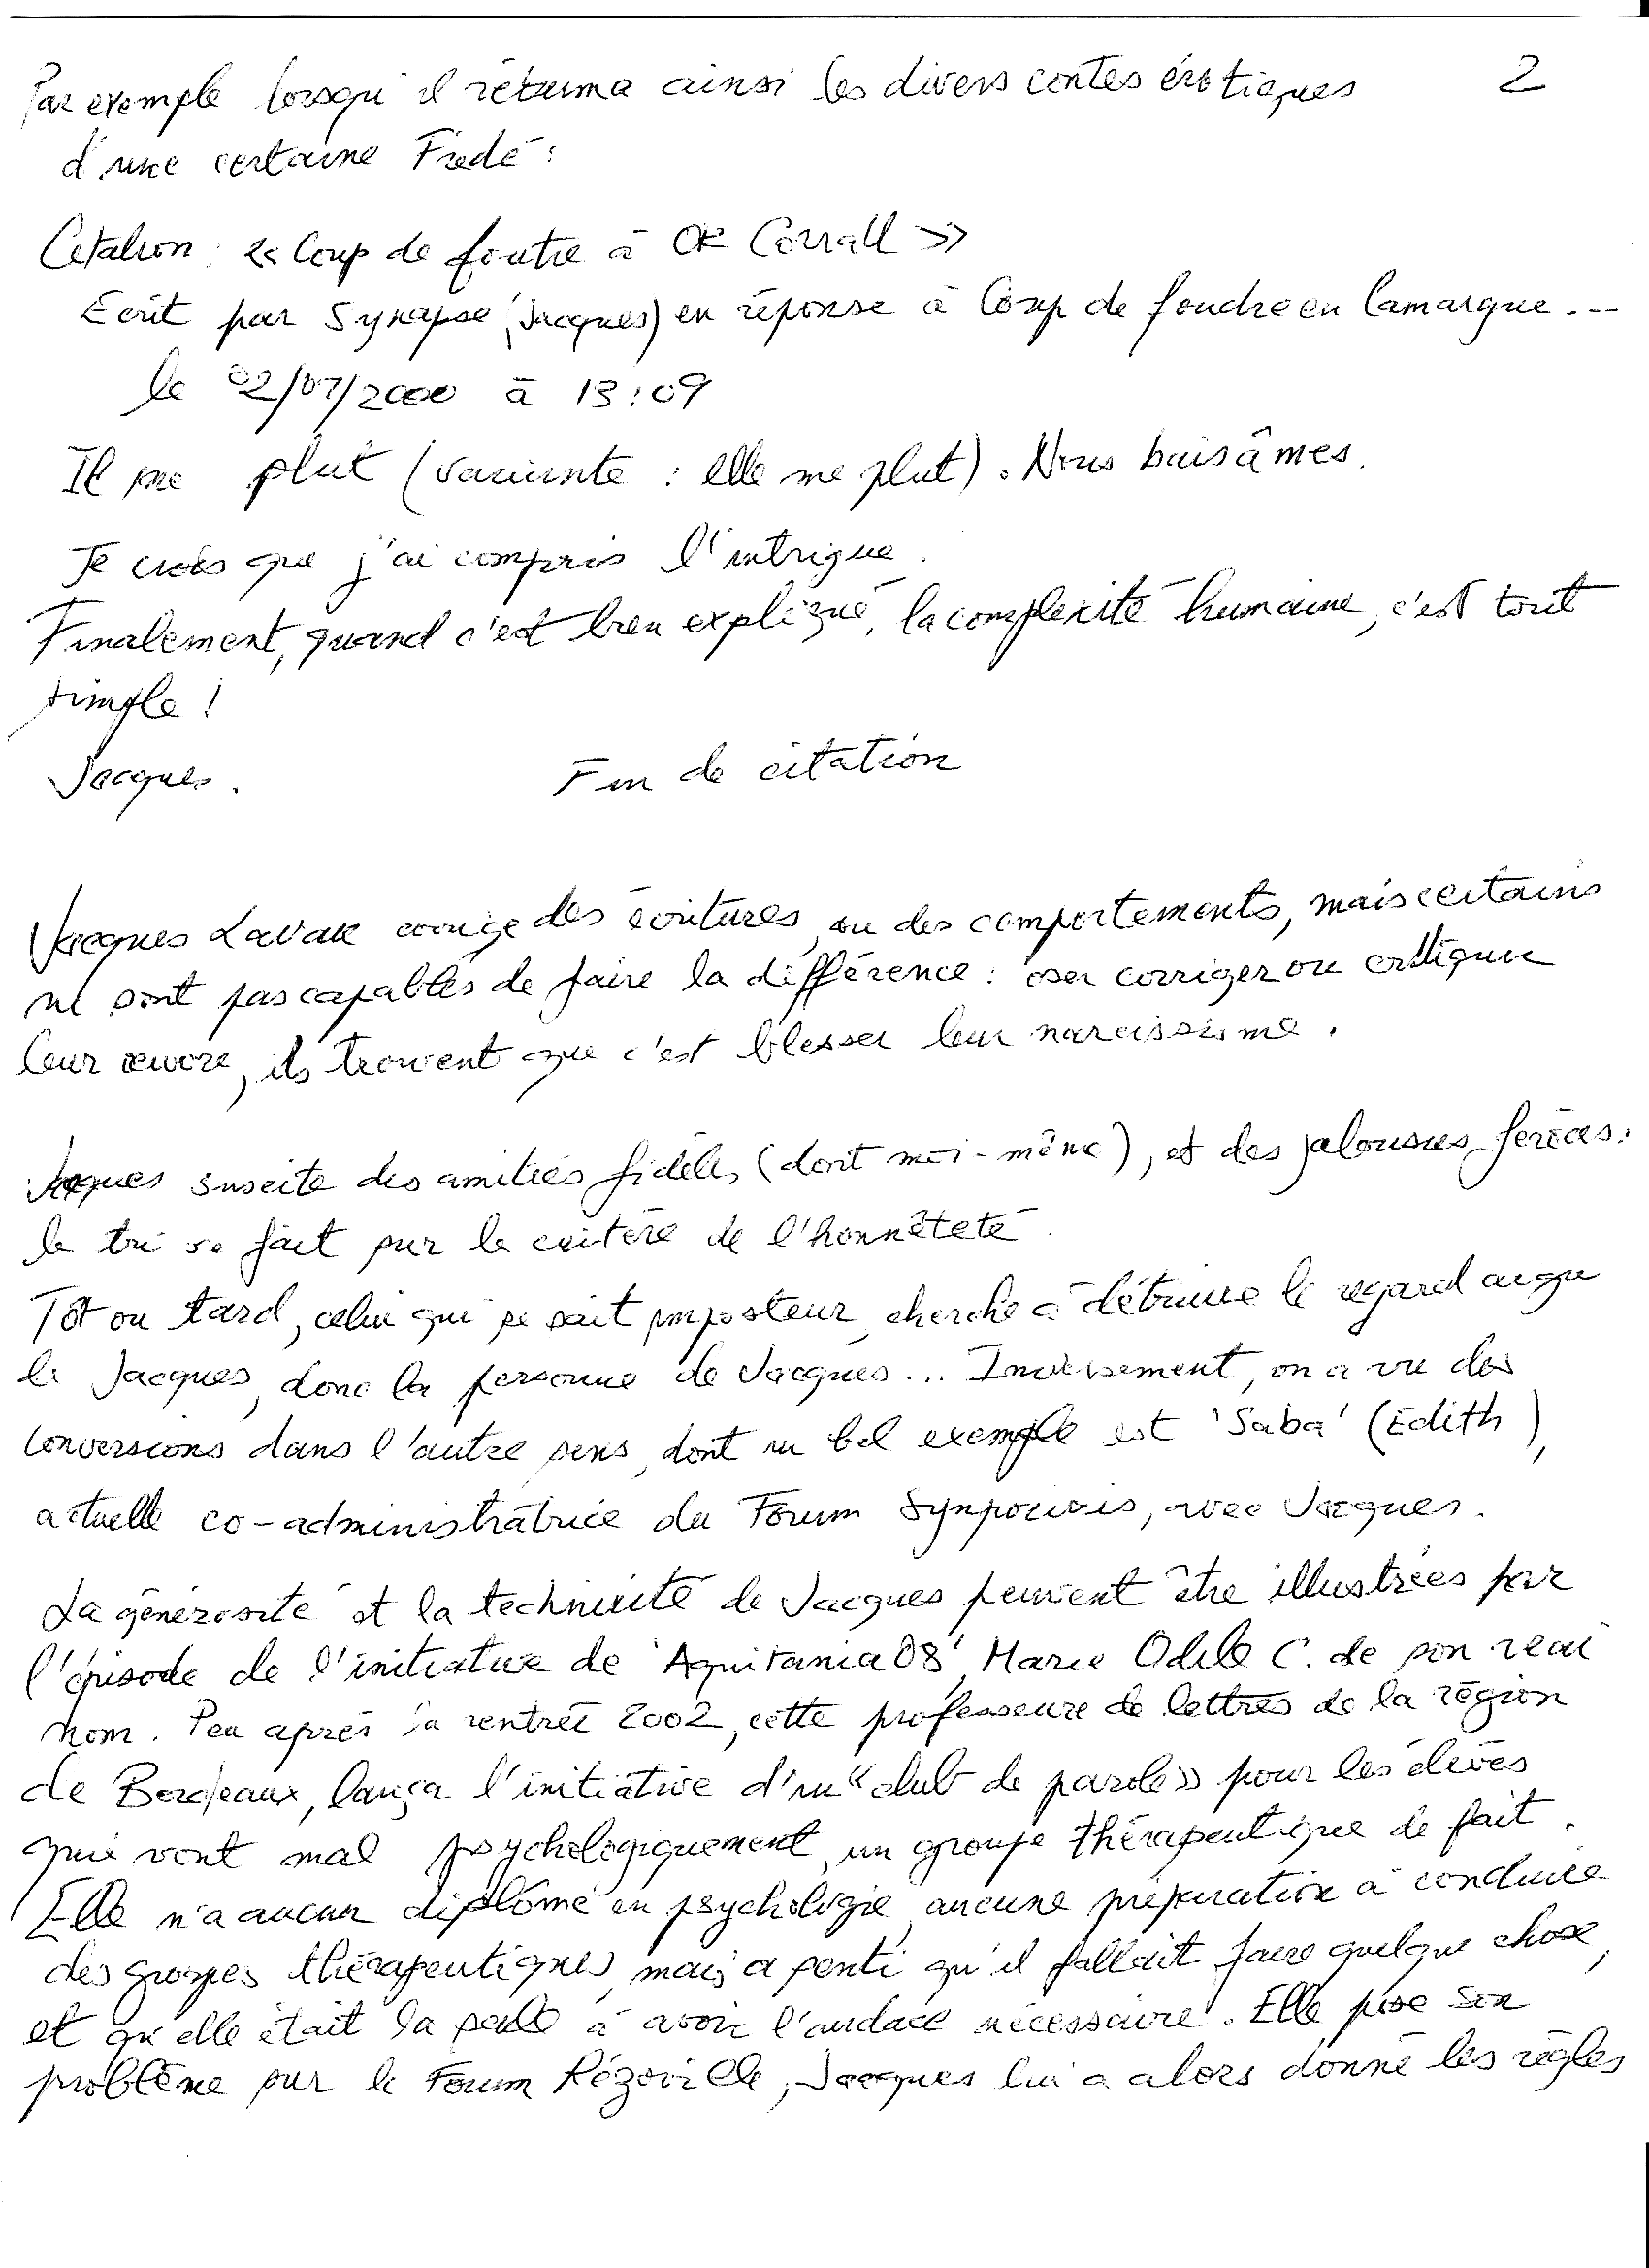 Par exemple lorsqu'il résuma ainsi les divers contes érotiques 2
d'une certaine Fredé :
Citation : « Coup de foutre à OK Corrall »
Ecrit par Synapse (Jacques) en réponse à Coup de foudre en Camargue...
le 02/07/2000 à 13:09
Il me plut (variante : elle me plut). Nous baisâmes.
Je crois que j'ai compris l'intrigue.
Finalement, quand c'est bien expliqué, la complexité humaine, c'est tout
simple !
Jacques. Fin de citation
Jacques Lavau corrige des écritures, ou des comportements, mais certains
ne sont pas capables de faire la différence : oser corriger ou critiquer
leur œuvre, ils trouvent que c'est blesser leur narcissisme.
Jacques suscite des amitiés fidèles (dont moi-même), et des jalousies féroces :
le tri se fait sur le critère de l'honnêteté.
Tôt ou tard, celui qui se sait imposteur, cherche à détruire le regard aigu
de Jacques, donc la personne de Jacques... Inversement, on a vu des
conversions dans l'autre sens, dont un bel exemple est 'Saba' (Edith),
actuelle co-administratrice du Forum Synpouvris, avec Jacques.
La générosité et la technicité de Jacques peuvent être illustrées par
l'épisode de l'initiative de 'Aquitania08', Marie Odile C. de son vrai
nom. Peu après la rentrée 2002, cette professeure de lettres de la région
de Bordeaux, lança l'initiative d'un « club de parole » pour les élèves
qui vont mal psychologiquement, un groupe thérapeutique de fait.
Elle n'a aucun diplôme en psychologie, aucune préparation à conduire
des groupes thérapeutiques, mais a senti qu'il fallait faire quelque chose,
et qu'elle était la seule à avoir l'audace nécessaire. Elle pose son
problème sur le Forum Rézoville, Jacques lui a alors donné les règles